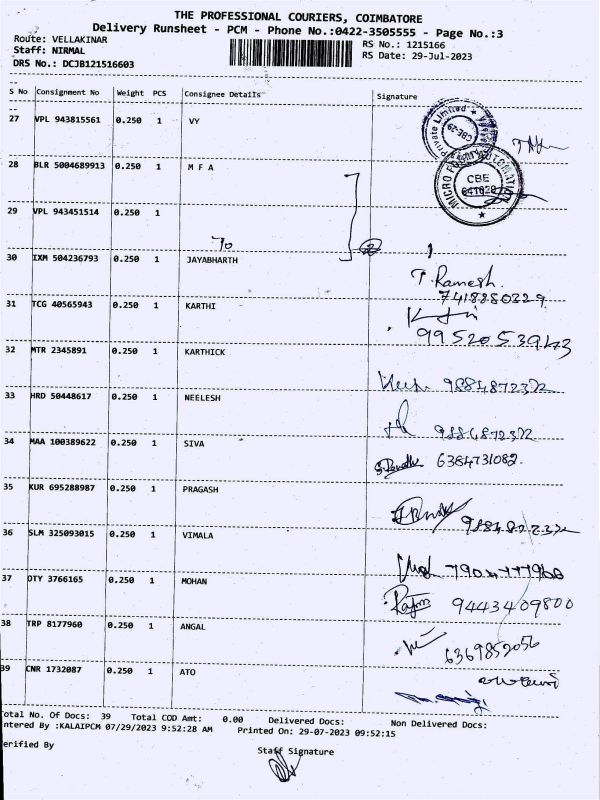 THE PROFESSIONAL COURIERS, COIMBATORE
Delivery Runsheet - PCM - Phone No.:0422-3505555 - Page No.:3
Route: VELLAKINAR
RS No.: 1215166
Staff: NIRMAL
RS Date: 29-Jul-2023
DRS No.: DCJB121516603
S No Consignment No Weight PCS Consignee Details Signature
27 VPL 943815561 0.250 1 VY
Private Limited
CBE-29
28 BLR 5004689913 0.250 1 M F A
MICRO AUTOMATION
CBE
641029
29 VPL 943451514 0.250 1
To
30 IXM 504236793 0.250 1 JAYABHARTH
T. Ramesh.
7418880329
31 TCG 40565943 0.250 1 KARTHI
9952053943
32 MTR 2345891 0.250 1 KARTHICK
9884872372
33 HRD 50448617 0.250 1 NEELESH
9884872372
34 MAA 100389622 0.250 1 SIVA
6384731082
35 KUR 695288987 0.250 1 PRAGASH
36 SLM 325093015 0.250 1 VIMALA
37 OTY 3766165 0.250 1 MOHAN
9443409800
38 TRP 8177960 0.250 1 ANGAL
6369852056
39 CNR 1732087 0.250 1 ATO
otal No. Of Docs: 39 Total COD Amt: 0.00 Delivered Docs: Non Delivered Docs:
ntered By :KALAIPCM 07/29/2023 9:52:28 AM Printed On: 29-07-2023 09:52:15
erified By
Staff Signature